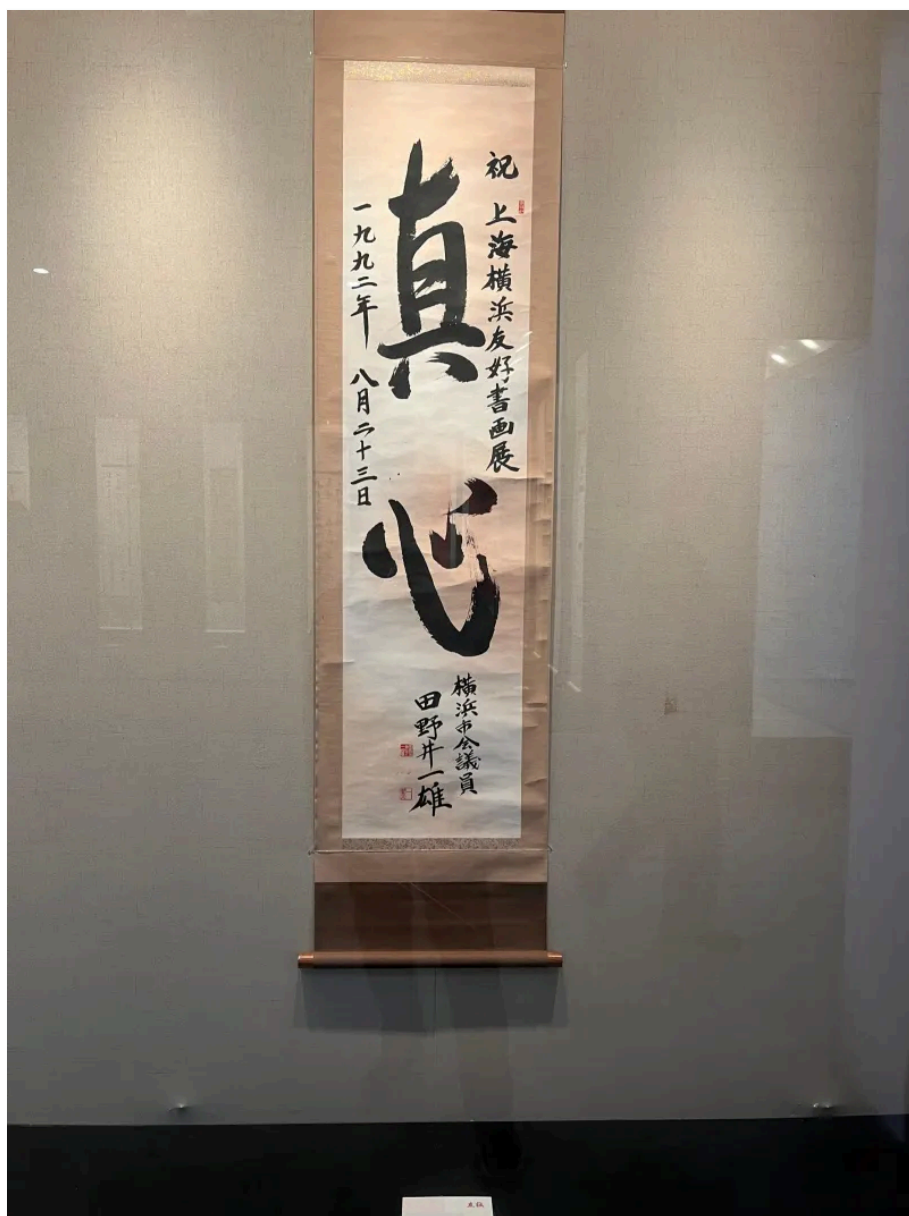 祝 上海横浜友好書画展
真心
一九九二年 八月二十三日
横浜市会議員
田野井一雄